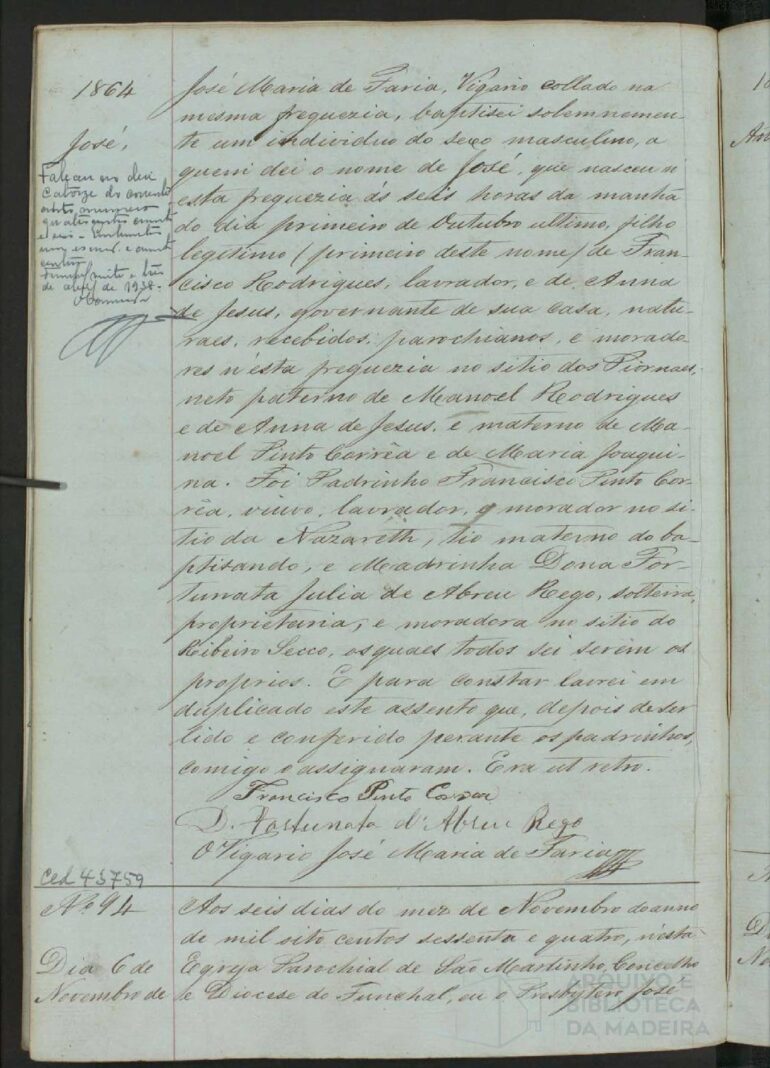 1864
José,
Faleceu no dia
catorze do corrente
numero
quatrocentos
Funchal, vinte e três
de de 1938.
José Maria de Faria, Vigario collado na
mesma freguezia, baptisei solemnemen-
te um individuo do sexo masculino, a
quem dei o nome de José, que nasceu n'
esta freguezia ás seis horas da manhã
do dia primeiro de Outubro ultimo, filho
legitimo (primeiro deste nome) de Fran-
cisco Rodrigues, lavrador, e de Anna
de Jesus, governante de sua casa, natu-
raes, recebidos, parochianos, e morado-
res n'esta freguezia no sitio dos Piornaes,
neto paterno de Manoel Rodrigues
e de Anna de Jesus, e materno de Ma-
noel Pinto Corrêa e de Maria Joaqui-
na. Foi Padrinho Francisco Pinto Cor-
rêa, viuvo, lavrador, e morador no si-
tio da Nazareth, tio materno do ba-
ptisando, e Madrinha Dona For-
tunata Julia de Abreu Rego, solteira,
proprietaria, e moradora no sitio do
Ribeiro Secco, os quaes todos sei serem os
proprios. E para constar lavrei em
duplicado este assento que, depois de ser
lido e conferido perante os padrinhos,
comigo o assignaram. Era ut retro.
Francisco Pinto Correa
D. Fortunata d'Abreu Rego
O Vigario José Maria de Faria
Ced 43759
Nº 94
Dia 6 de
Novembro de
Aos seis dias do mez de Novembro do anno
de mil oito centos sessenta e quatro, n'esta
Egreja Parochial de São Martinho Concelho
e Diocese do Funchal, eu o Presbytero José
ARQUIVO E
BIBLIOTECA
DA MADEIRA